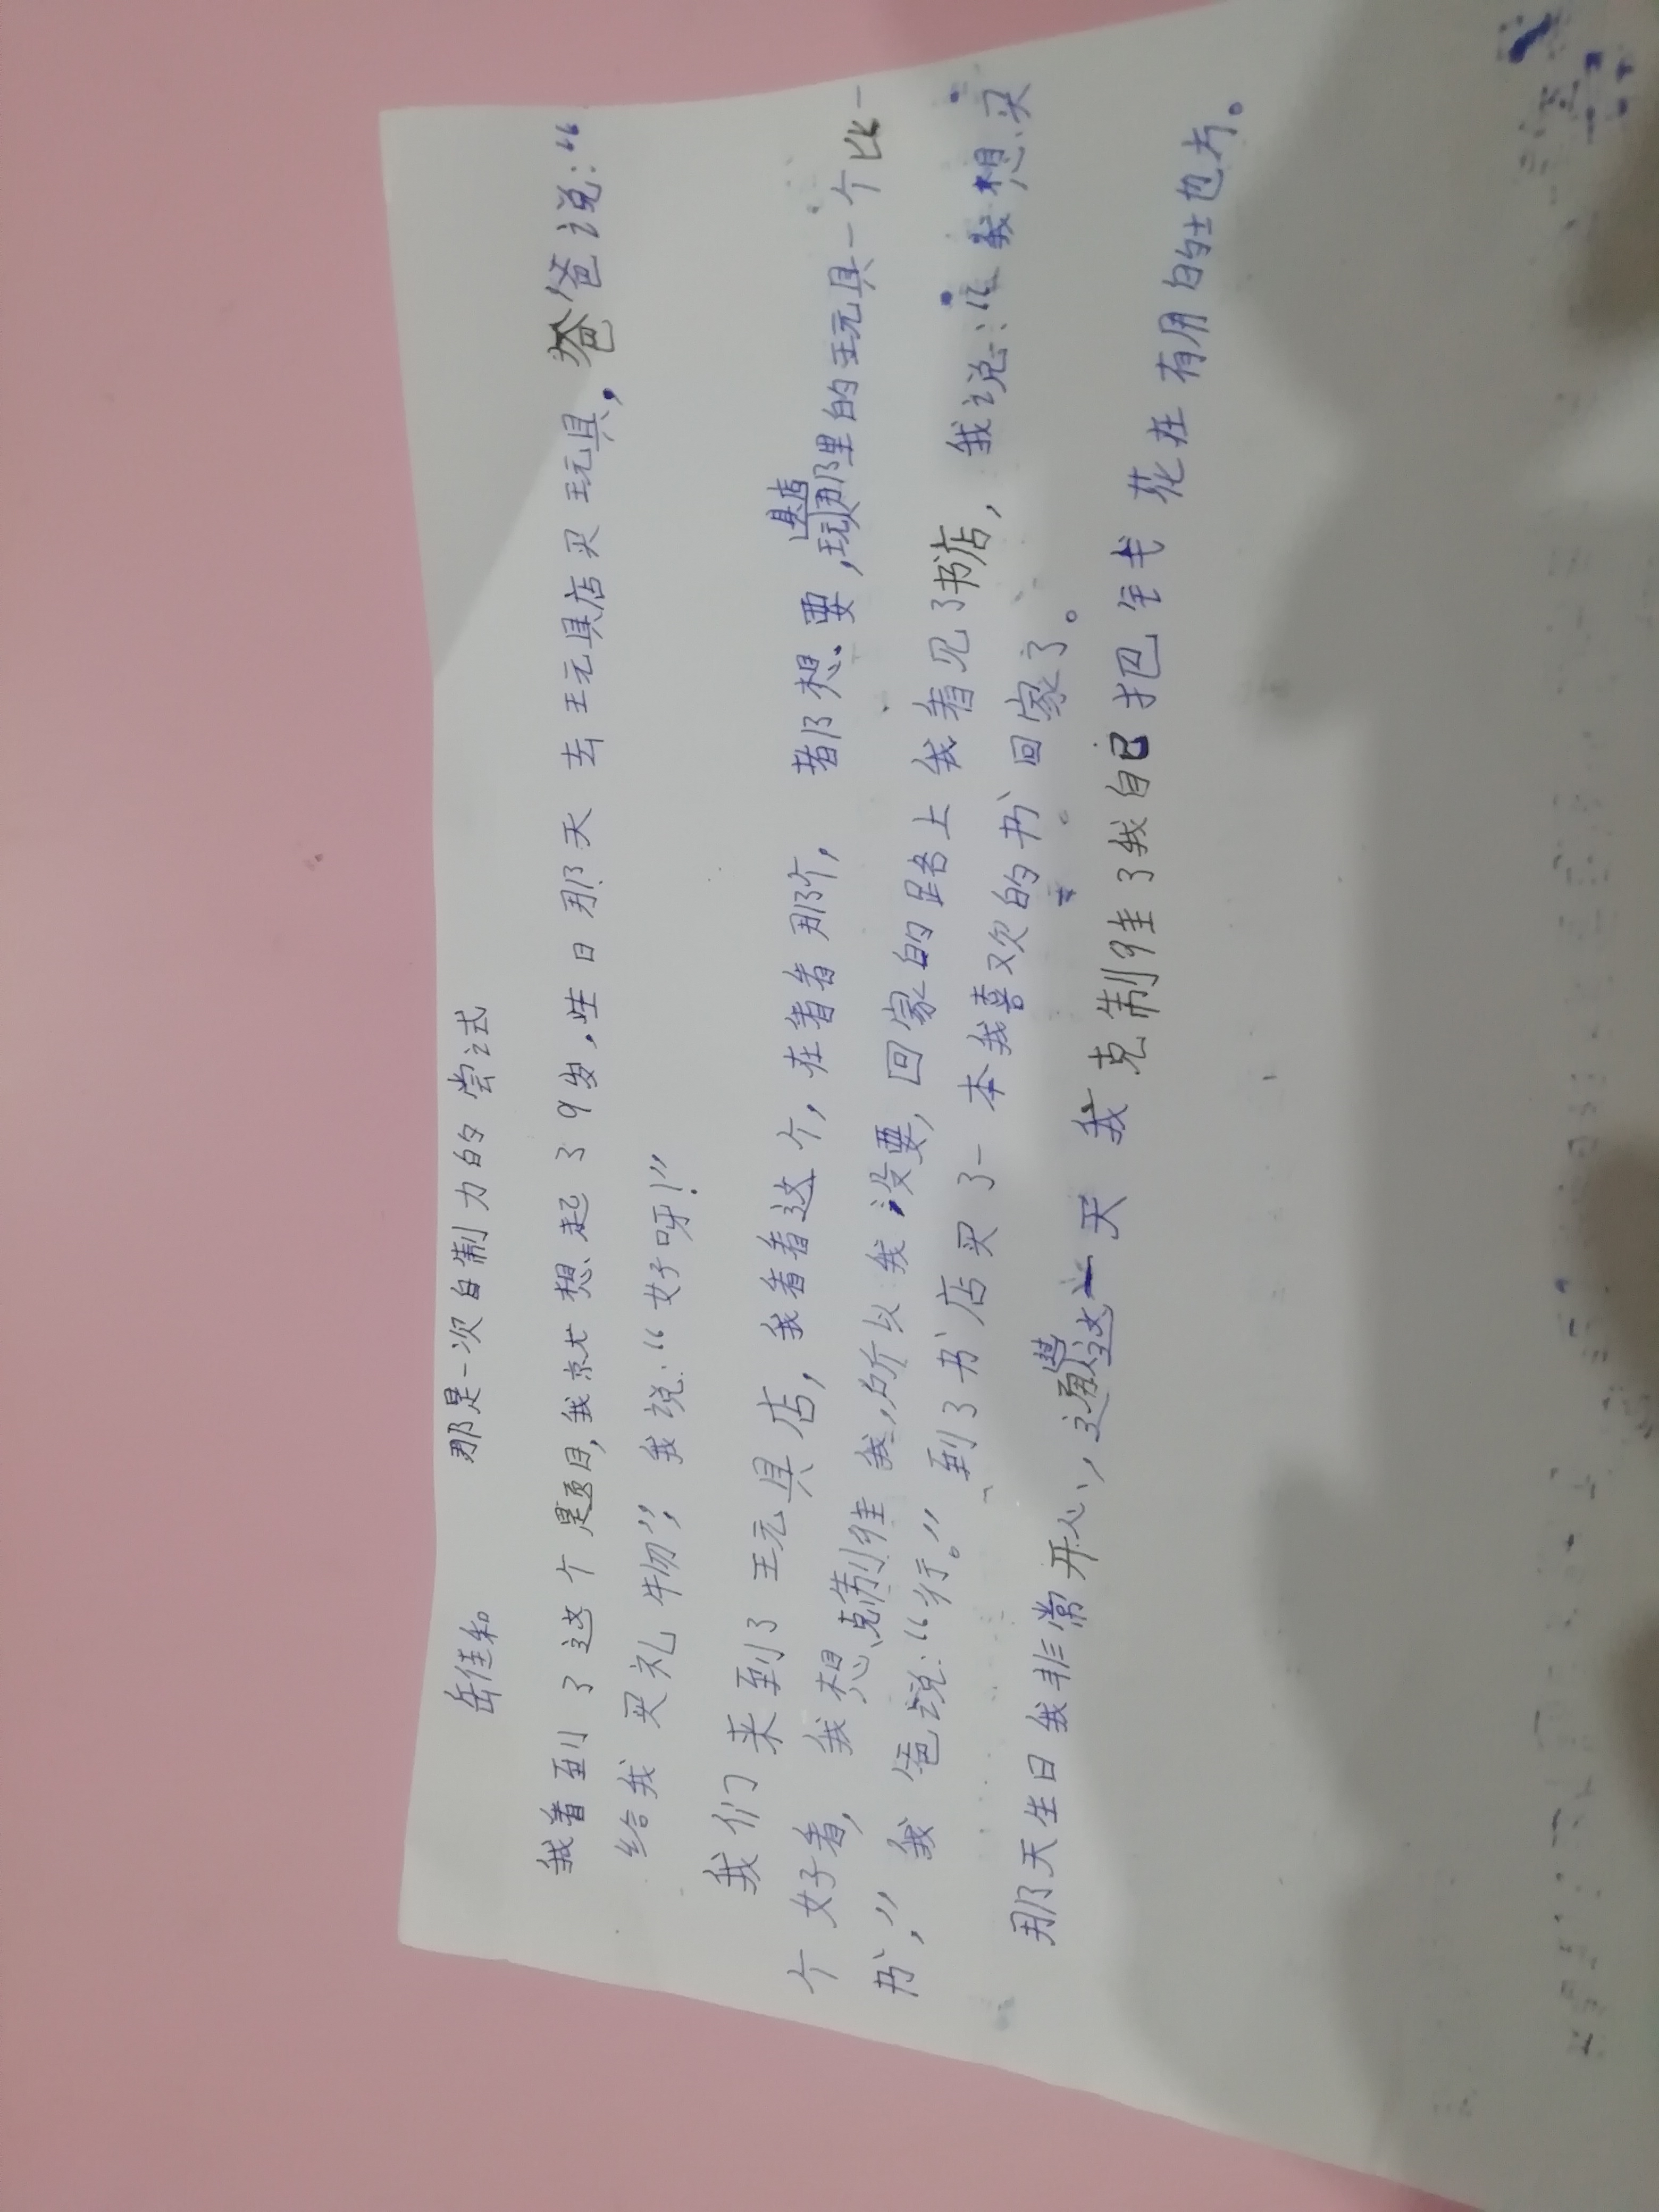 岳佳和 那是一次自制力的尝试
我看到了这个题目,我就想起了9岁,生日那天去玩具店买玩具,爸爸说:“
给我买礼物”,我说:“好呀!”
我们来到了玩具店,我看看这个,在看看那个,都想要,玩具店那里的玩具一个比一
个好看,我想克制住我,所以我没要,回家的路上我看见了书店,我说:“我想买
书,”我爸说:“行。”到了书店买了一本我喜欢的书回家了。
那天生日我非常开心,通过这一天我克制住了我自己把钱花在有用的地方。